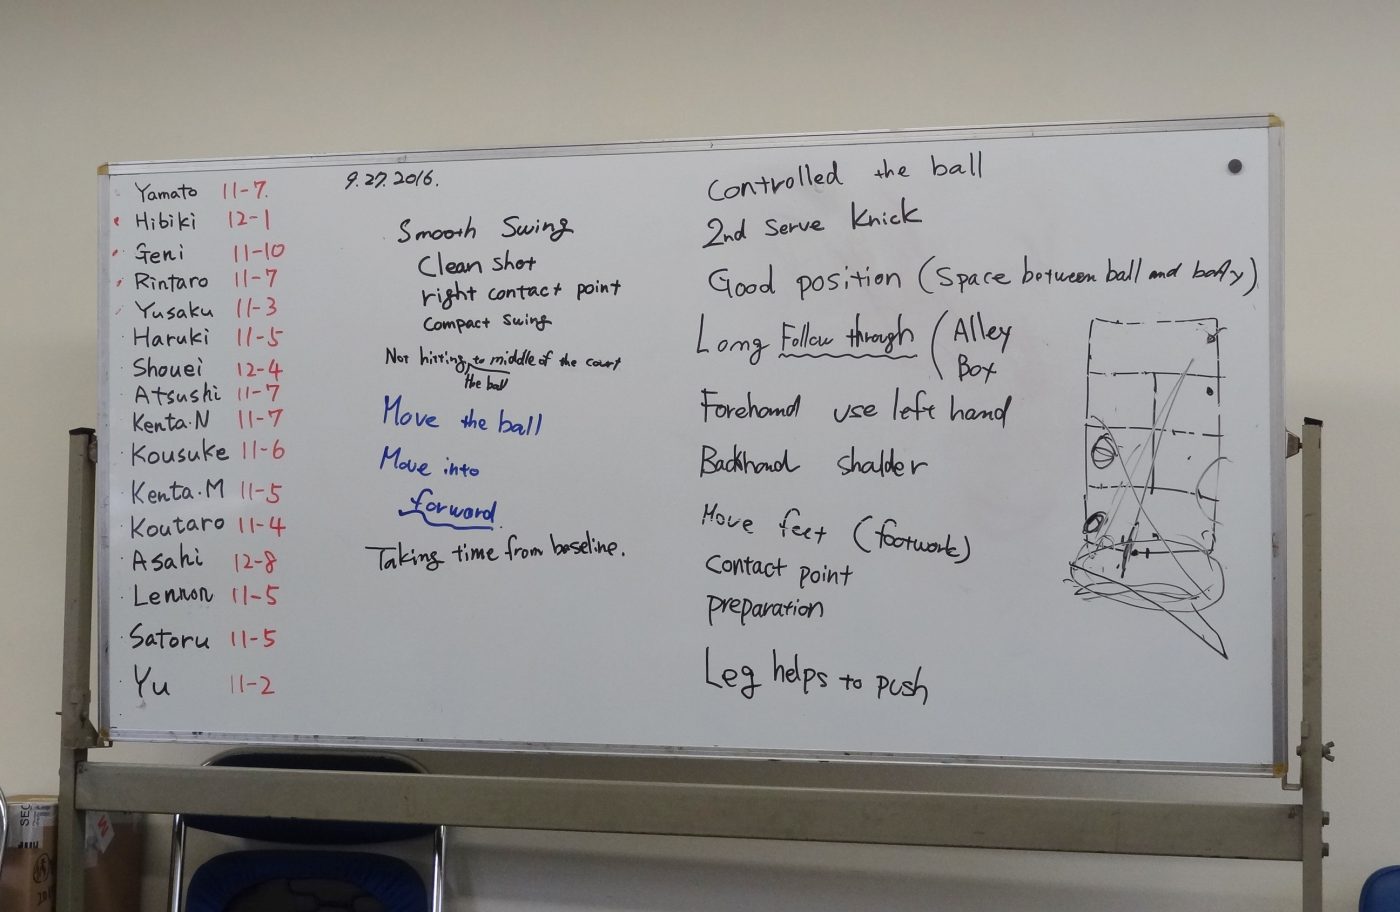 Yamato 11-7
Hibiki 12-1
Geni 11-10
Rintaro 11-7
Yusaku 11-3
Haruki 11-5
Shouei 12-4
Atsushi 11-7
Kenta.N 11-7
Kousuke 11-6
Kenta.M 11-5
Koutaro 11-4
Asahi 12-8
Lennon 11-5
Satoru 11-5
Yu 11-2
9.27.2016.
Smooth Swing
Clean shot
right contact point
Compact swing
Not hitting to middle of the court
the ball
Move the ball
Move into
forward
Taking time from baseline.
Controlled the ball
2nd serve knick
Good position (Space between ball and body)
Long Follow through (Alley
Box
Forehand use left hand
Backhand shalder
Move feet (footwork)
Contact point
preparation
Leg helps to push
SEC